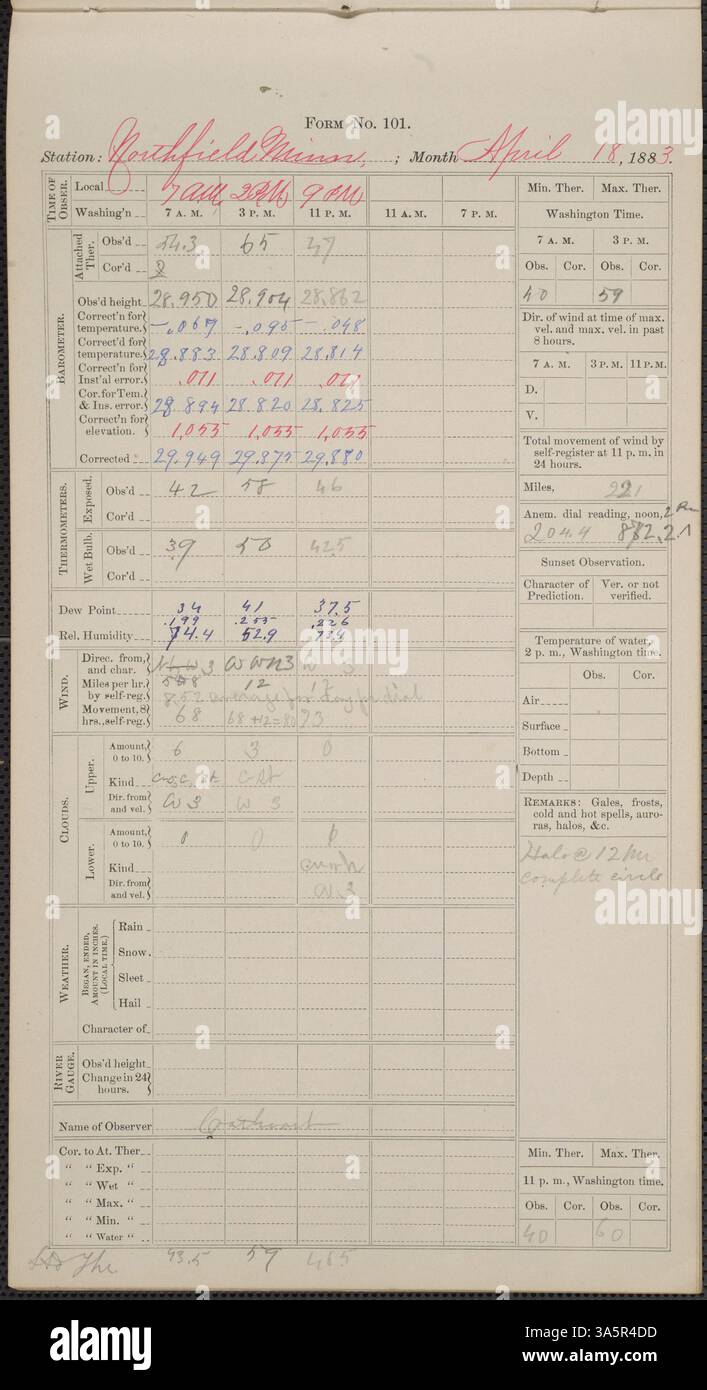 FORM No. 101.
Station: Northfield Minn, ; Month April 18, 1883.
TIME OF OBSER. Local 7 AM 2 PM 9 PM
Washing'n 7 A. M. 3 P. M. 11 P. M. 11 A. M. 7 P. M.
Attached Ther. Obs'd 54.3 65 47
Cor'd
BAROMETER.
Obs'd height 28.950 28.904 28.862
Correct'n for temperature. -.067 -.095 -.048
Correct'd for temperature. 28.883 28.809 28.814
Correct'n for Inst'al error. .011 .011 .011
Cor. for Tem. & Ins. error. 28.894 28.820 28.825
Correct'n for elevation. 1,055 1,055 1,055
Corrected 29.949 29.875 29.880
THERMOMETERS.
Exposed. Obs'd 42 58 46
Cor'd
Wet Bulb. Obs'd 39 50 42.5
Cor'd
Dew Point 34 41 37.5
.199 .255 .226
Rel. Humidity 74.4 52.9
WIND.
Direc. from, and char. 3 W WN3 W 3
Miles per hr. by self-reg. 8 12 12
8.52 average for day for dial
Movement, 8 hrs., self-reg. 68 68+12=80 73
CLOUDS.
Upper. Amount, 0 to 10. 6 3 0
Kind C-St
Dir. from and vel. W 3 W 3
Lower. Amount, 0 to 10. 0 0
Kind
Dir. from and vel.
WEATHER.
BEGAN, ENDED, AMOUNT IN INCHES. (LOCAL TIME.)
Rain
Snow.
Sleet
Hail
Character of
RIVER GAUGE.
Obs'd height
Change in 24 hours.
Name of Observer Cathcart
Cor. to At. Ther
" " Exp. "
" " Wet "
" " Max. "
" " Min. "
" " Water "
43.5 59 46.5
Min. Ther. Max. Ther.
Washington Time.
7 A. M. 3 P. M.
Obs. Cor. Obs. Cor.
40 59
Dir. of wind at time of max. vel. and max. vel. in past 8 hours.
7 A. M. 3 P.M. 11 P.M.
D.
V.
Total movement of wind by self-register at 11 p. m. in 24 hours.
Miles, 221
Anem. dial reading, noon, 2 Pm
204.4
Sunset Observation.
Character of Prediction. Ver. or not verified.
Temperature of water, 2 p. m., Washington time.
Obs. Cor.
Air
Surface
Bottom
Depth
REMARKS: Gales, frosts, cold and hot spells, auroras, halos, &c.
Halo @ 12 M
complete circle
Min. Ther. Max. Ther.
11 p. m., Washington time.
Obs. Cor. Obs. Cor.
40 60
alamy
a
alamy
Image ID: 3A5R4DD
www.alamy.com